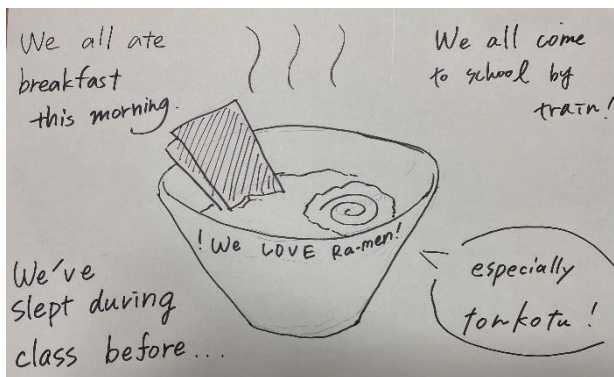 We all ate
breakfast
this morning.
We all come
to school by
train!
! We LOVE Ra-men!
especially
tonkotu !
We've
slept during
class before...